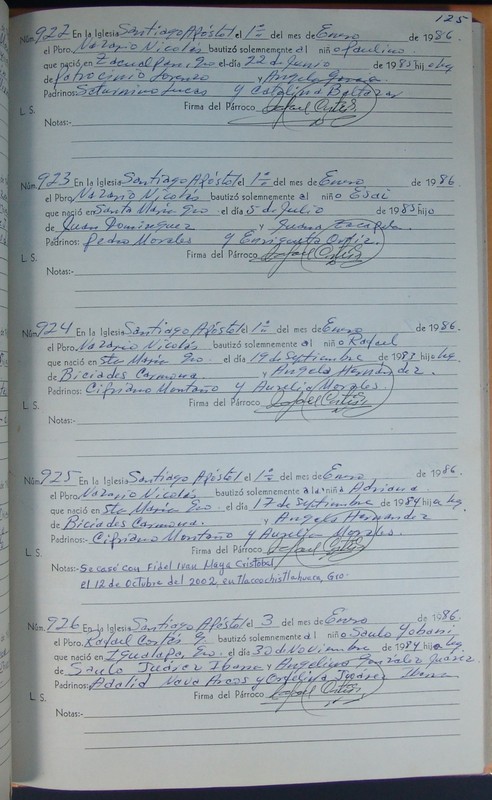 125
Núm. 922 En la Iglesia Santiago Apóstol el 1º del mes de Enero de 1986.
el Pbro. Nazario Nicolás bautizó solemnemente al niño Paulino
que nació en Zacualpan, Gro el día 22 de Junio de 1985 hijo leg.
de Patrocinio Lorenzo y Angela
Padrinos: Saturnino Lucas y Catalina Baltazar
L. S. Firma del Párroco Rafael Cortés
Notas:-
Núm. 923 En la Iglesia Santiago Apóstol el 1º del mes de Enero de 1986.
el Pbro. Nazario Nicolás bautizó solemnemente al niño Esaí
que nació en Santa María Gro el día 5 de Julio de 1985 hijo
de Juan Dominguez y Juana Escalera.
Padrinos: Pedro Morales y Enriqueta Ortiz.
L. S. Firma del Párroco Rafael Cortés
Notas:-
Núm. 924 En la Iglesia Santiago Apóstol el 1º del mes de Enero de 1986.
el Pbro. Nazario Nicolás bautizó solemnemente al niño Rafael
que nació en Sta María Gro. el día 19 de Septiembre de hijo leg.
de Biciades Carmona y Angela Hernández.
Padrinos: Cipriano Montaño y Aurelia Morales.
L. S. Firma del Párroco Rafael Cortés
Notas:-
Núm. 925 En la Iglesia Santiago Apóstol el 1º del mes de Enero de 1986.
el Pbro. Nazario Nicolás bautizó solemnemente a la niña Adriana
que nació en Sta María Gro. el día 17 de Septiembre de 1984 hija leg.
de Biciades Carmona. y Angela Hernandez
Padrinos:- Cipriano Montaño y Aurelia Morales.
L. S. Firma del Párroco Rafael Cortés
Notas:- Se casó con Fidel Ivan Maya Cristóbal,
el 12 de Octubre del 2002, en Tlacoachistlahuaca, Gro.
Núm. 926 En la Iglesia Santiago Apóstol el 3 del mes de Enero de 1986.
el Pbro. Rafael Cortés G. bautizó solemnemente al niño Saulo Yobani
que nació en Igualapa, Gro. el día 30 de Noviembre de 1984 hijo leg.
de Saulo Juárez Ibarra y Angelina González Juárez
Padrinos: Adalid Nava Arcos y Orfelina Juárez
L. S. Firma del Párroco Rafael Cortés
Notas:-